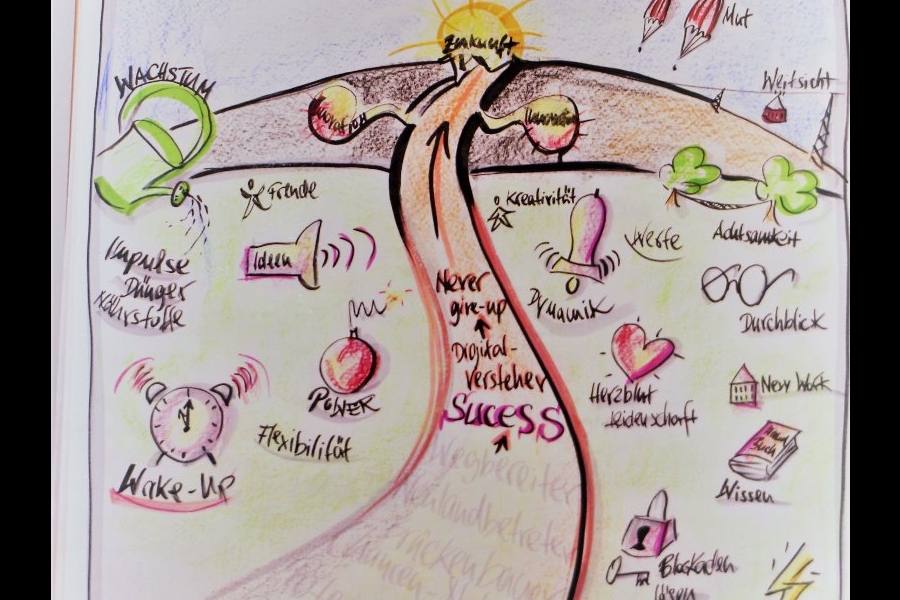 Zukunft
Mut
WACHSTUM
Weitsicht
Innovation
Freude
Kreativität
Werte
Achtsamkeit
Ideen
Impulse
Dünger
Nährstoffe
Dynamik
Durchblick
Never
give-up
Digital-
versteher
SUCESS
POWER
Herzblut
Leidenschaft
New Work
Flexibilität
Wake-Up
Wissen
Wegbereiter
Neulandbetreter
Brückenbauer
Blockaden
lösen